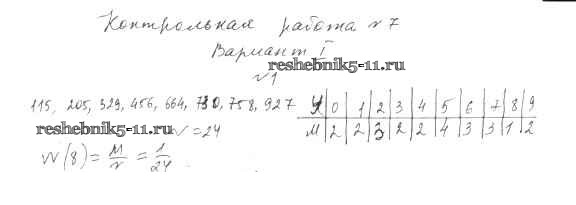 Контрольная работа №7
Вариант I
reshebnik5-11.ru
№1
115, 205, 329, 456, 664, 730, 758, 927
У 0 1 2 3 4 5 6 7 8 9
reshebnik5-11.ru N = 24
М 2 2 3 2 2 4 3 3 1 2
W(8) = М/N = 1/24